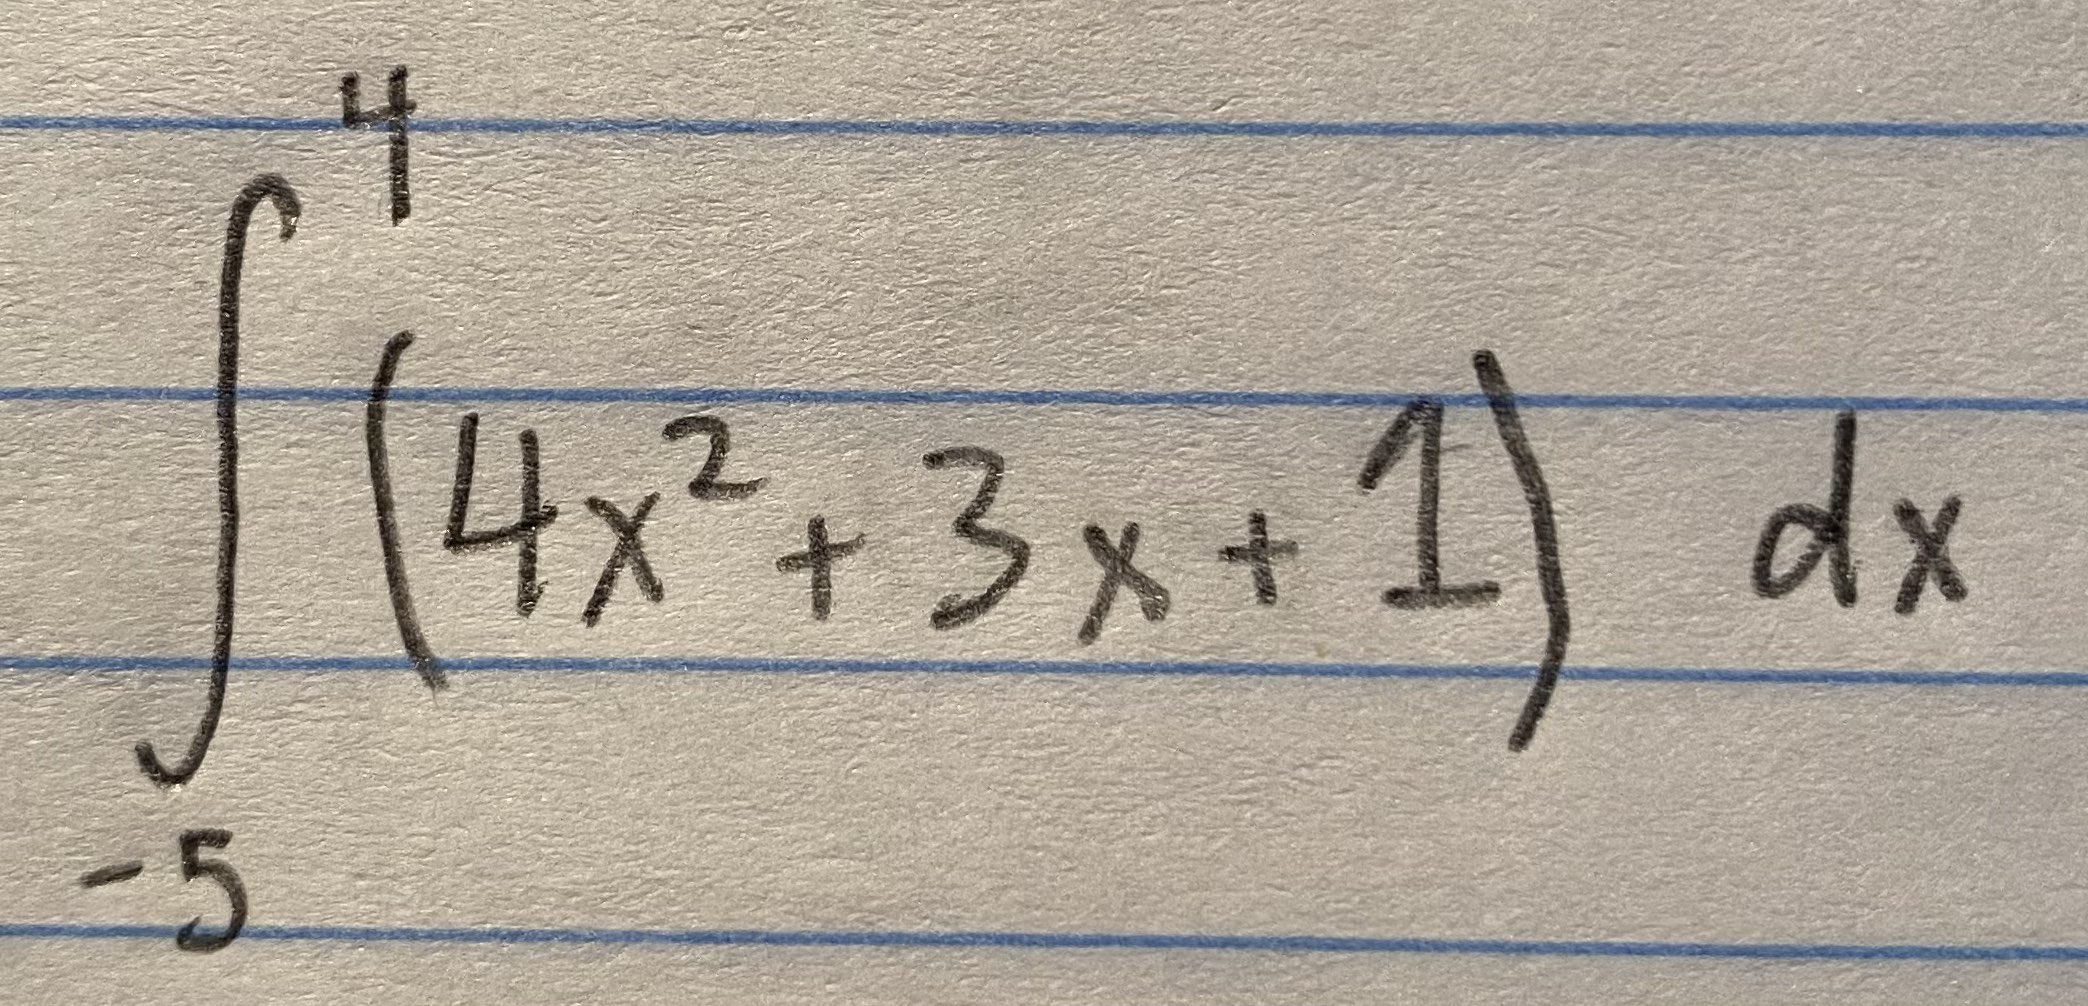 ∫_{-5}^{4} (4x² + 3x + 1) dx